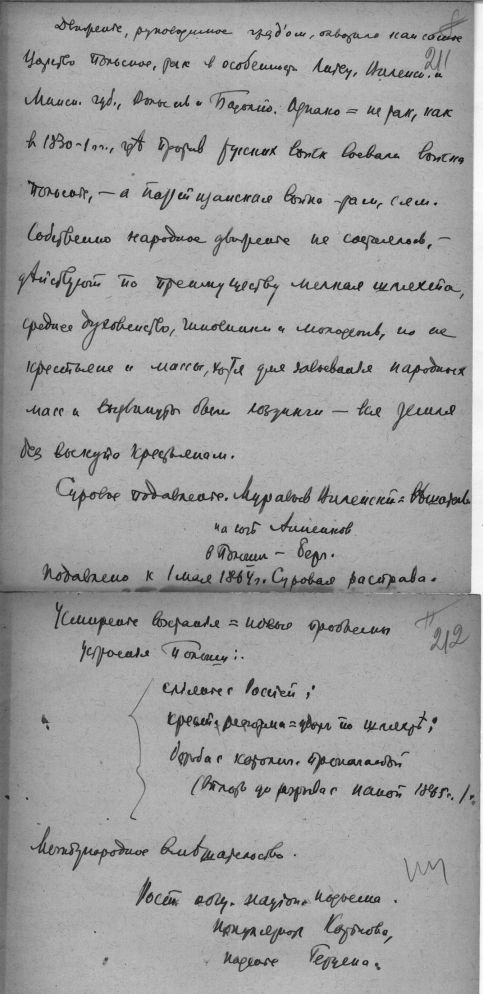 Движение, руководимое жондом, охватило как собств.
211
Царство Польское, так в особенности Литву, Виленск. и
Минск. губ., Волынь и Подолию. Однако = не так, как
в 1830-1 гг., где против русских войск воевали войска
польские, — а партизанская война там, сям.
Собственно народное движение не состоялось, —
действуют по преимуществу мелкая шляхта,
среднее духовенство, чиновники и молодежь, но не
крестьяне и массы, хотя для завоевания народных
масс и выдвинуты были лозунги — вся земля
без выкупа крестьянам.
Суровое подавление. Муравьев Виленский =
на юге Анненков
в Польше – Берг.
Подавлено к 1 мая 1864 г. Суровая расправа.
212
Усмирение восстания = новые проблемы
устроения Польши:
слияние с Россией;
крест. реформа = удар по шляхте;
борьба с католич. пропагандой
(вплоть до разрыва с папой 1865 г.).
Международное вмешательство.
Рост национ. подъема.
популярность Каткова,
падение Герцена.